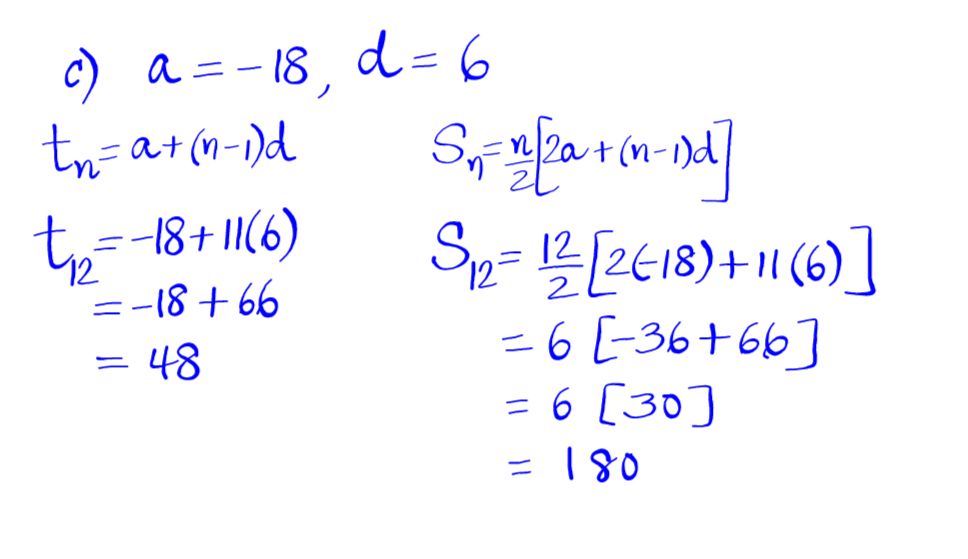 c) a = -18, d = 6
tₙ = a + (n-1)d
t₁₂ = -18 + 11(6)
= -18 + 66
= 48
Sₙ = n/2 [2a + (n-1)d]
S₁₂ = 12/2 [2(-18) + 11(6)]
= 6 [-36 + 66]
= 6 [30]
= 180